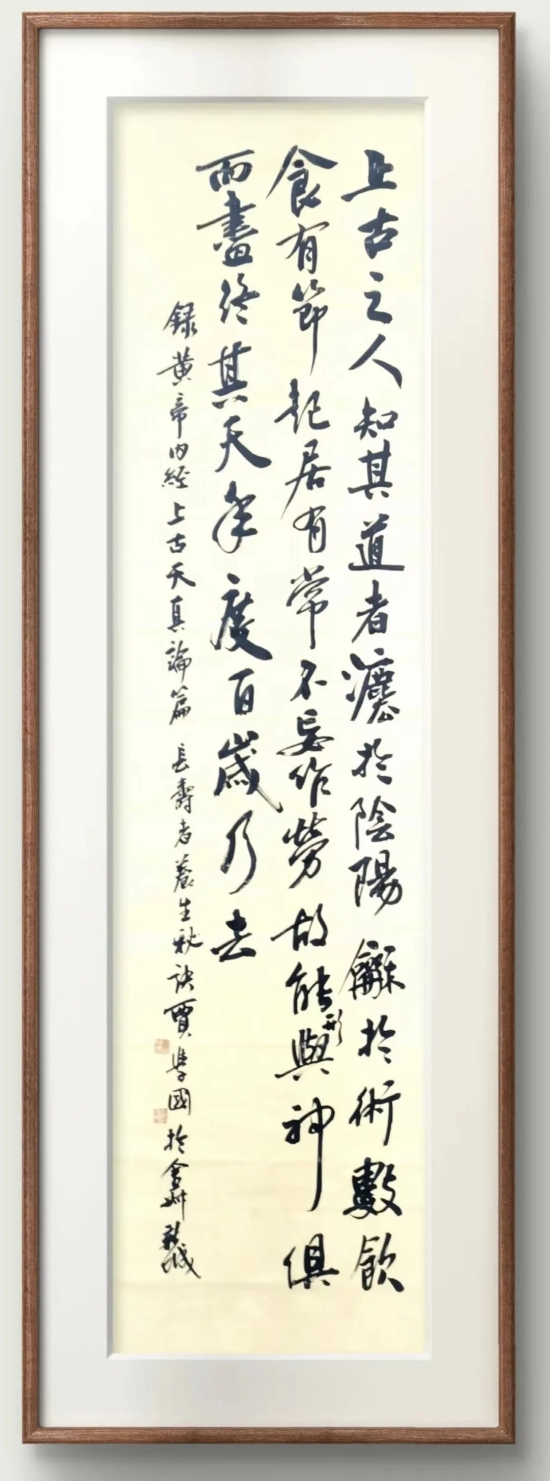 上古之人知其道者灋於陰陽龢於術數飲
食有節起居有常不妄作勞故能形與神俱
而盡終其天年度百歲乃去
録黄帝内経上古天真論篇 長壽者養生秘訣 賈國於城